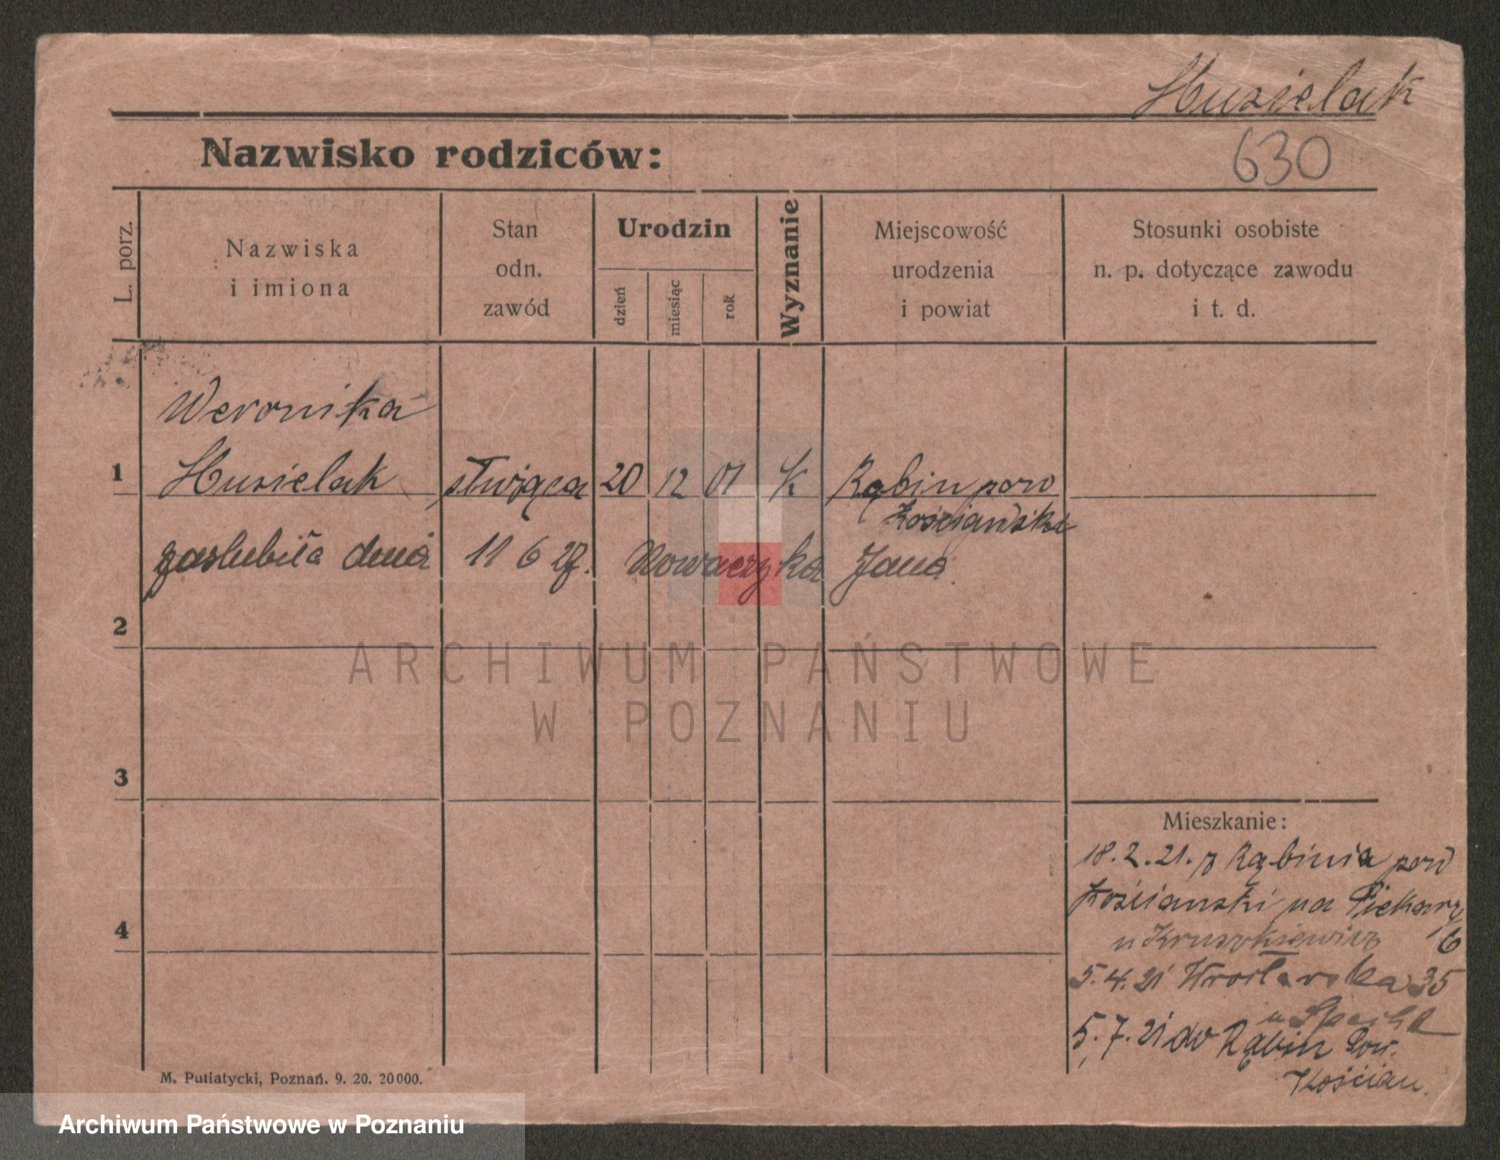 Musielak
630
Nazwisko rodziców:
L. porz.
Nazwiska
i imiona
Stan
odn.
zawód
Urodzin
dzień
miesiąc
rok
Wyznanie
Miejscowość
urodzenia
i powiat
Stosunki osobiste
n. p. dotyczące zawodu
i t. d.
Weronika
1 Musielak służąca 20 12 01 K Rąbin pow
Kościański
zaslubiła dnia 11 6 27. Nowaczyka Jana.
2
ARCHIWUM PAŃSTWOWE
W POZNANIU
3
4
Mieszkanie:
18.2.21. z Rąbinia pow
Kościanski na Piekary
u 6
5.4.21 Wrocławska 35
u
5.7.21 do Rąbin Pow.
Kościan.
M. Putiatycki, Poznań. 9. 20. 20000.
Archiwum Państwowe w Poznaniu